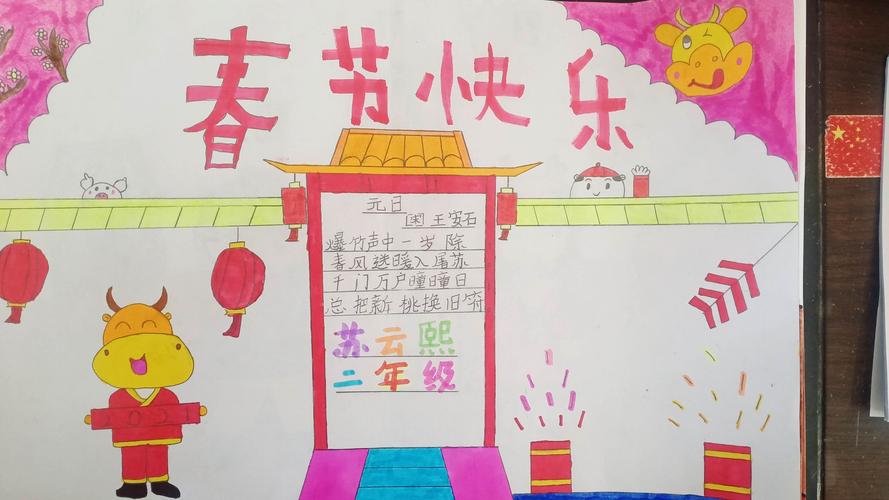 春节快乐
元日
[宋]王安石
爆竹声中一岁除
春风送暖入屠苏
千门万户瞳瞳日
总把新桃换旧符
苏云熙
二年级
2021